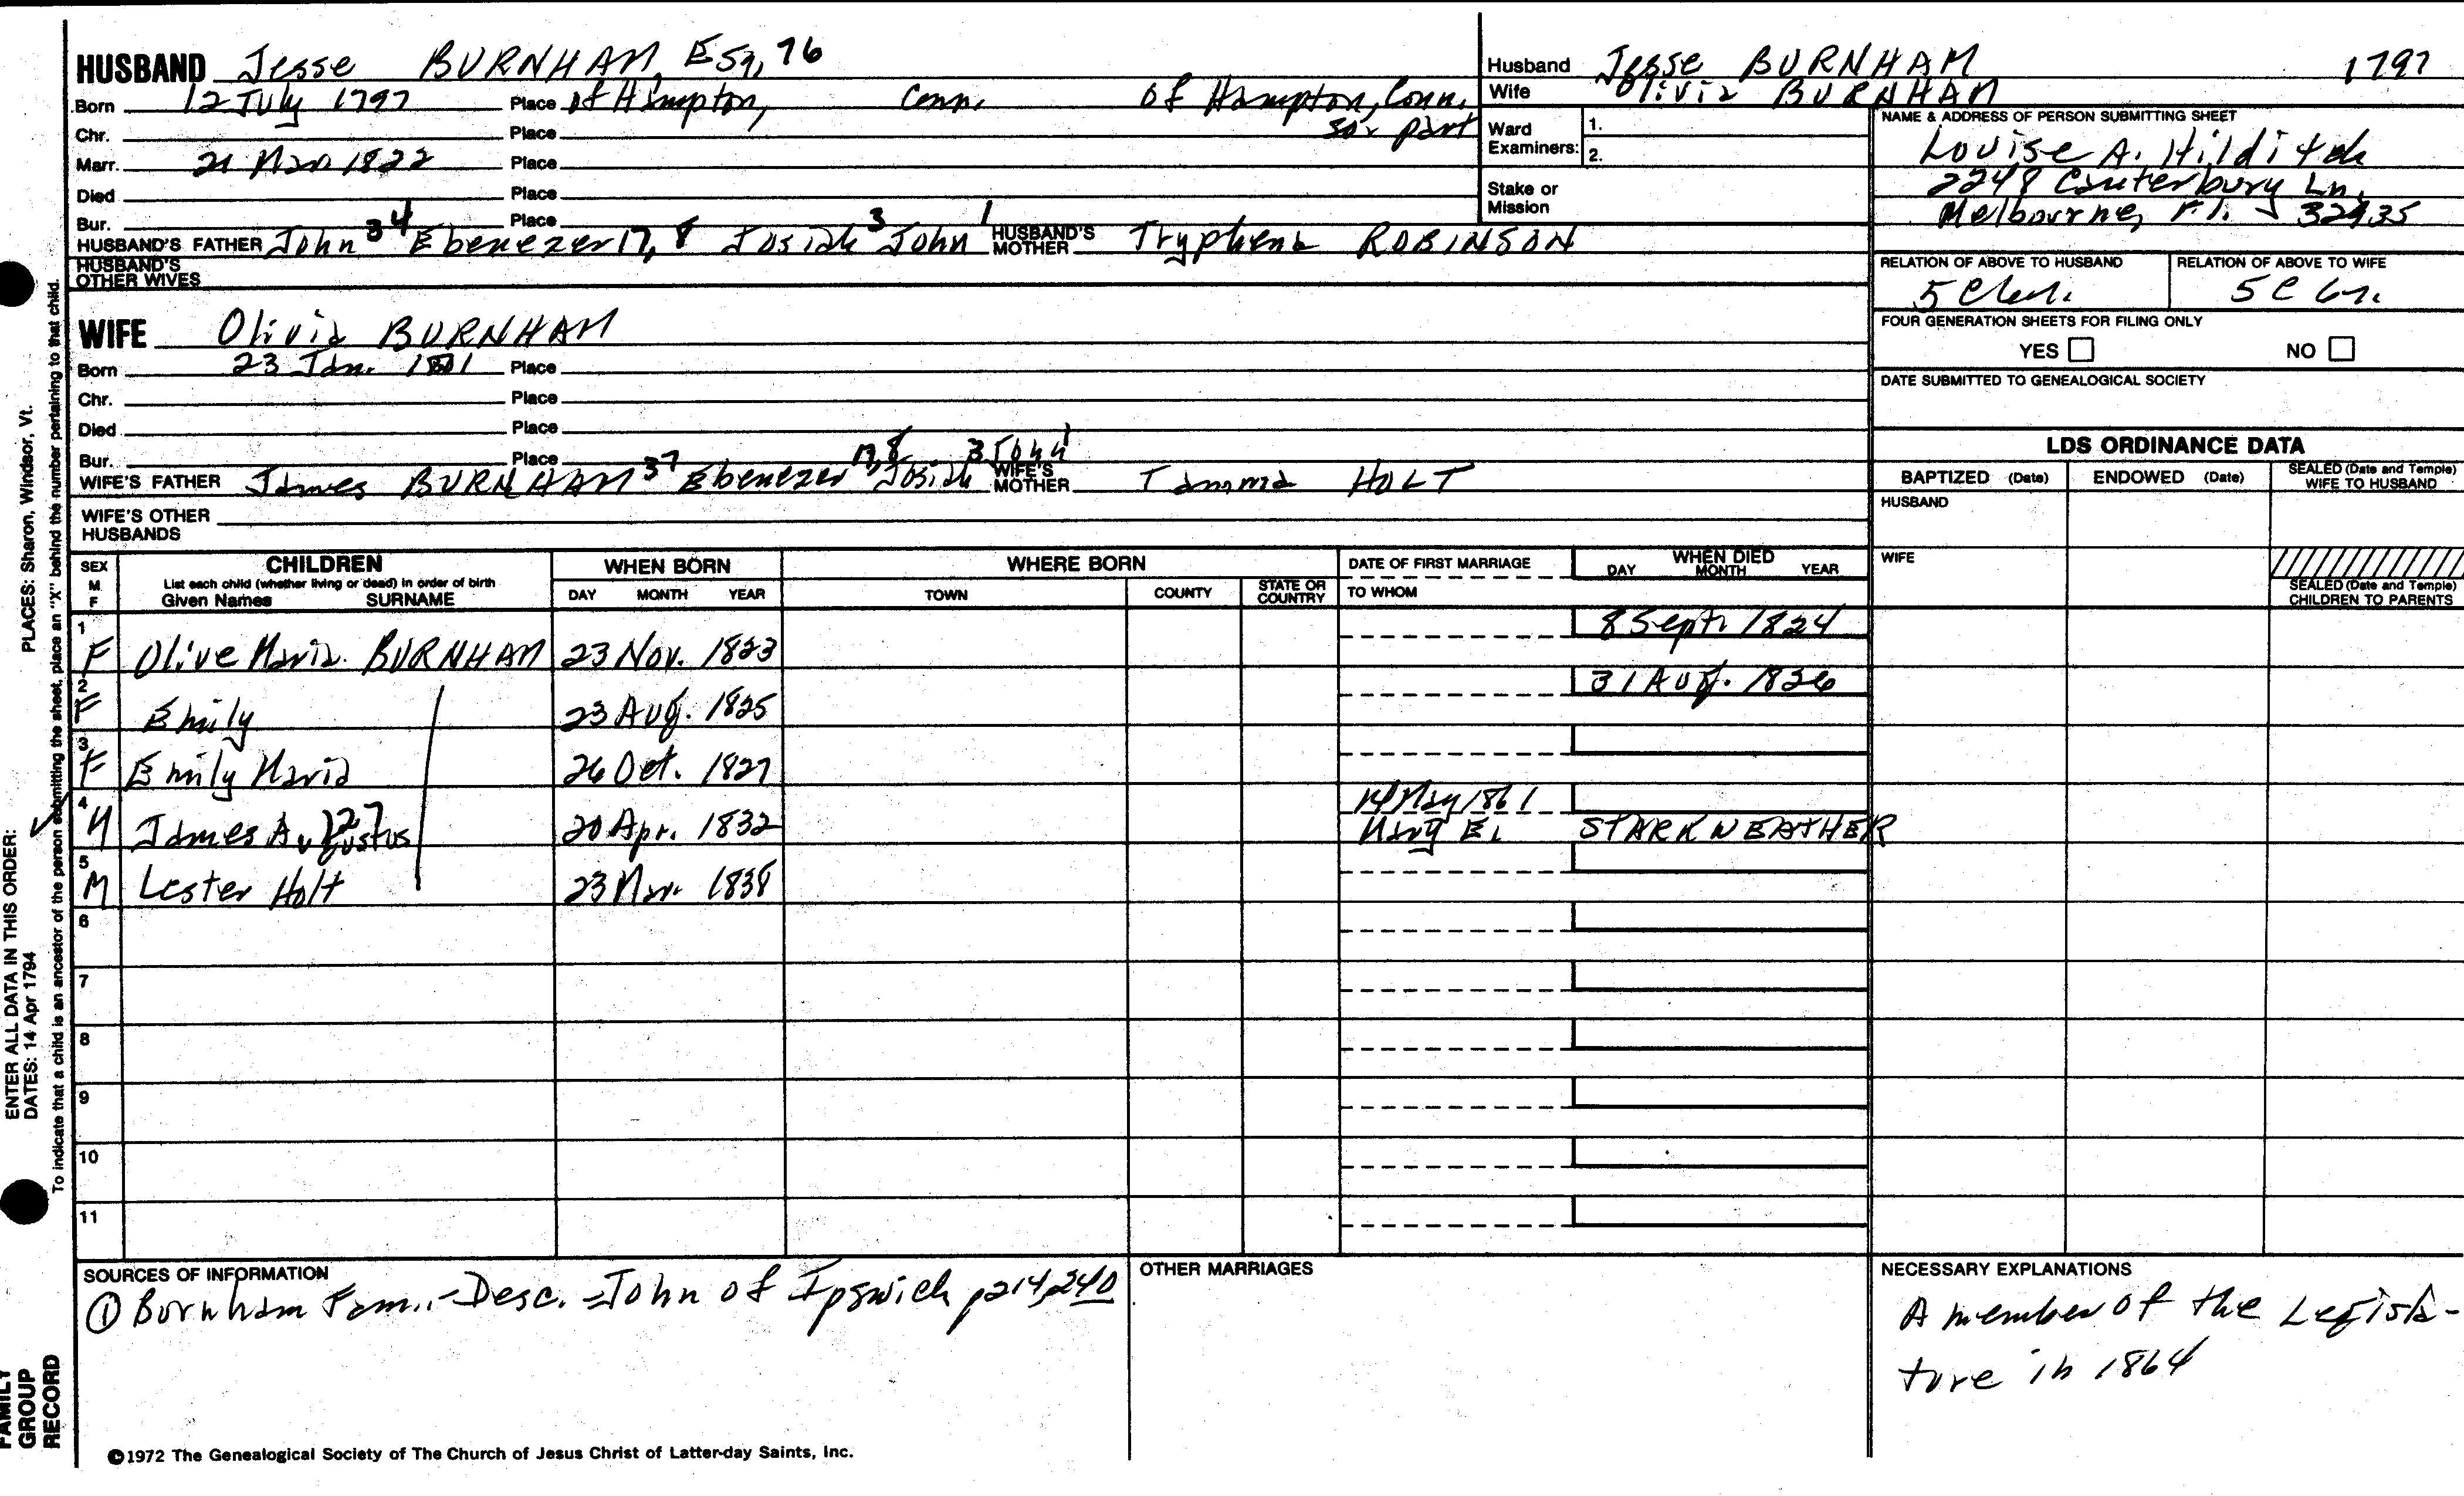 HUSBAND Jesse BURNHAM, Esq, 76
Born 12 July 1797 Place of Hampton, Conn. of Hampton, Conn.
Chr. Place so. part
Marr. 21 Mar 1822 Place
Died Place
Bur. Place
HUSBAND'S FATHER John 34 Ebenezer 17, 8 Josiah 3 John 1 HUSBAND'S MOTHER Tryphena ROBINSON
HUSBAND'S OTHER WIVES
WIFE Olivia BURNHAM
Born 23 Jan. 1801 Place
Chr. Place
Died Place
Bur. Place
WIFE'S FATHER James BURNHAM 37 Ebenezer 17, 8 Josiah 3 John 1 WIFE'S MOTHER Tamma HOLT
WIFE'S OTHER HUSBANDS
Husband Jesse BURNHAM 1797
Wife Olivia BURNHAM
Ward Examiners: 1.
2.
Stake or Mission
NAME & ADDRESS OF PERSON SUBMITTING SHEET
Louise A. Hilditch
2248 Canterbury Ln.
Melbourne, Fl. 32935
RELATION OF ABOVE TO HUSBAND RELATION OF ABOVE TO WIFE
5 C 6
FOUR GENERATION SHEETS FOR FILING ONLY
YES NO
DATE SUBMITTED TO GENEALOGICAL SOCIETY
LDS ORDINANCE DATA
BAPTIZED (Date) ENDOWED (Date) SEALED (Date and Temple) WIFE TO HUSBAND
HUSBAND
WIFE
SEALED (Date and Temple) CHILDREN TO PARENTS
SEX M F CHILDREN List each child (whether living or dead) in order of birth Given Names SURNAME
WHEN BORN DAY MONTH YEAR
WHERE BORN TOWN COUNTY STATE OR COUNTRY
DATE OF FIRST MARRIAGE TO WHOM
WHEN DIED DAY MONTH YEAR
1 F Olive Maria BURNHAM 23 Nov. 1823 8 Sept. 1824
2 F Emily 23 Aug. 1825 31 Aug. 1826
3 F Emily Maria 26 Oct. 1827
4 M James Augustus 127 20 Apr. 1832 14 May 1861 Mary E. STARKWEATHER
5 M Lester Holt 23 Mar. 1838
6
7
8
9
10
11
SOURCES OF INFORMATION
① Burnham Fam.-Desc.-John of Ipswich p214,240
OTHER MARRIAGES
NECESSARY EXPLANATIONS
A member of the Legisla-
ture in 1864
©1972 The Genealogical Society of The Church of Jesus Christ of Latter-day Saints, Inc.
ENTER ALL DATA IN THIS ORDER:
DATES: 14 Apr 1794
PLACES: Sharon, Windsor, Vt.
To indicate that a child is an ancestor of the person submitting the sheet, place an "X" behind the number pertaining to that child.
FAMILY GROUP RECORD